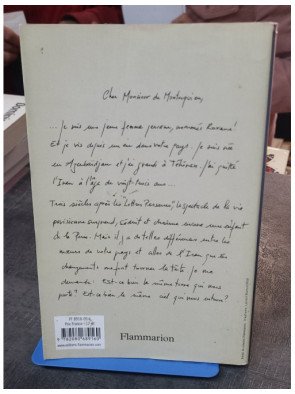 Cher Monsieur de Montesquieu,
... Je suis une jeune femme persane, nommée Roxane!
Et je vis depuis un an dans votre pays. Je suis née
en Azerbaïdjan et j'ai grandi à Téhéran. J'ai quitté
l'Iran à l'âge de vingt-trois ans...
Trois siècles après les Lettres Persanes, le spectacle de la vie
parisienne surprend, séduit et charme encore une enfant
de la Perse. Mais il y a de telles différences entre les
mœurs de votre pays et celles de l'Iran que ces
changements me font tourner la tête. Je me
demande: Est-ce bien le même terre qui nous
porte? Est-ce bien le même ciel qui nous entoure?
Flammarion